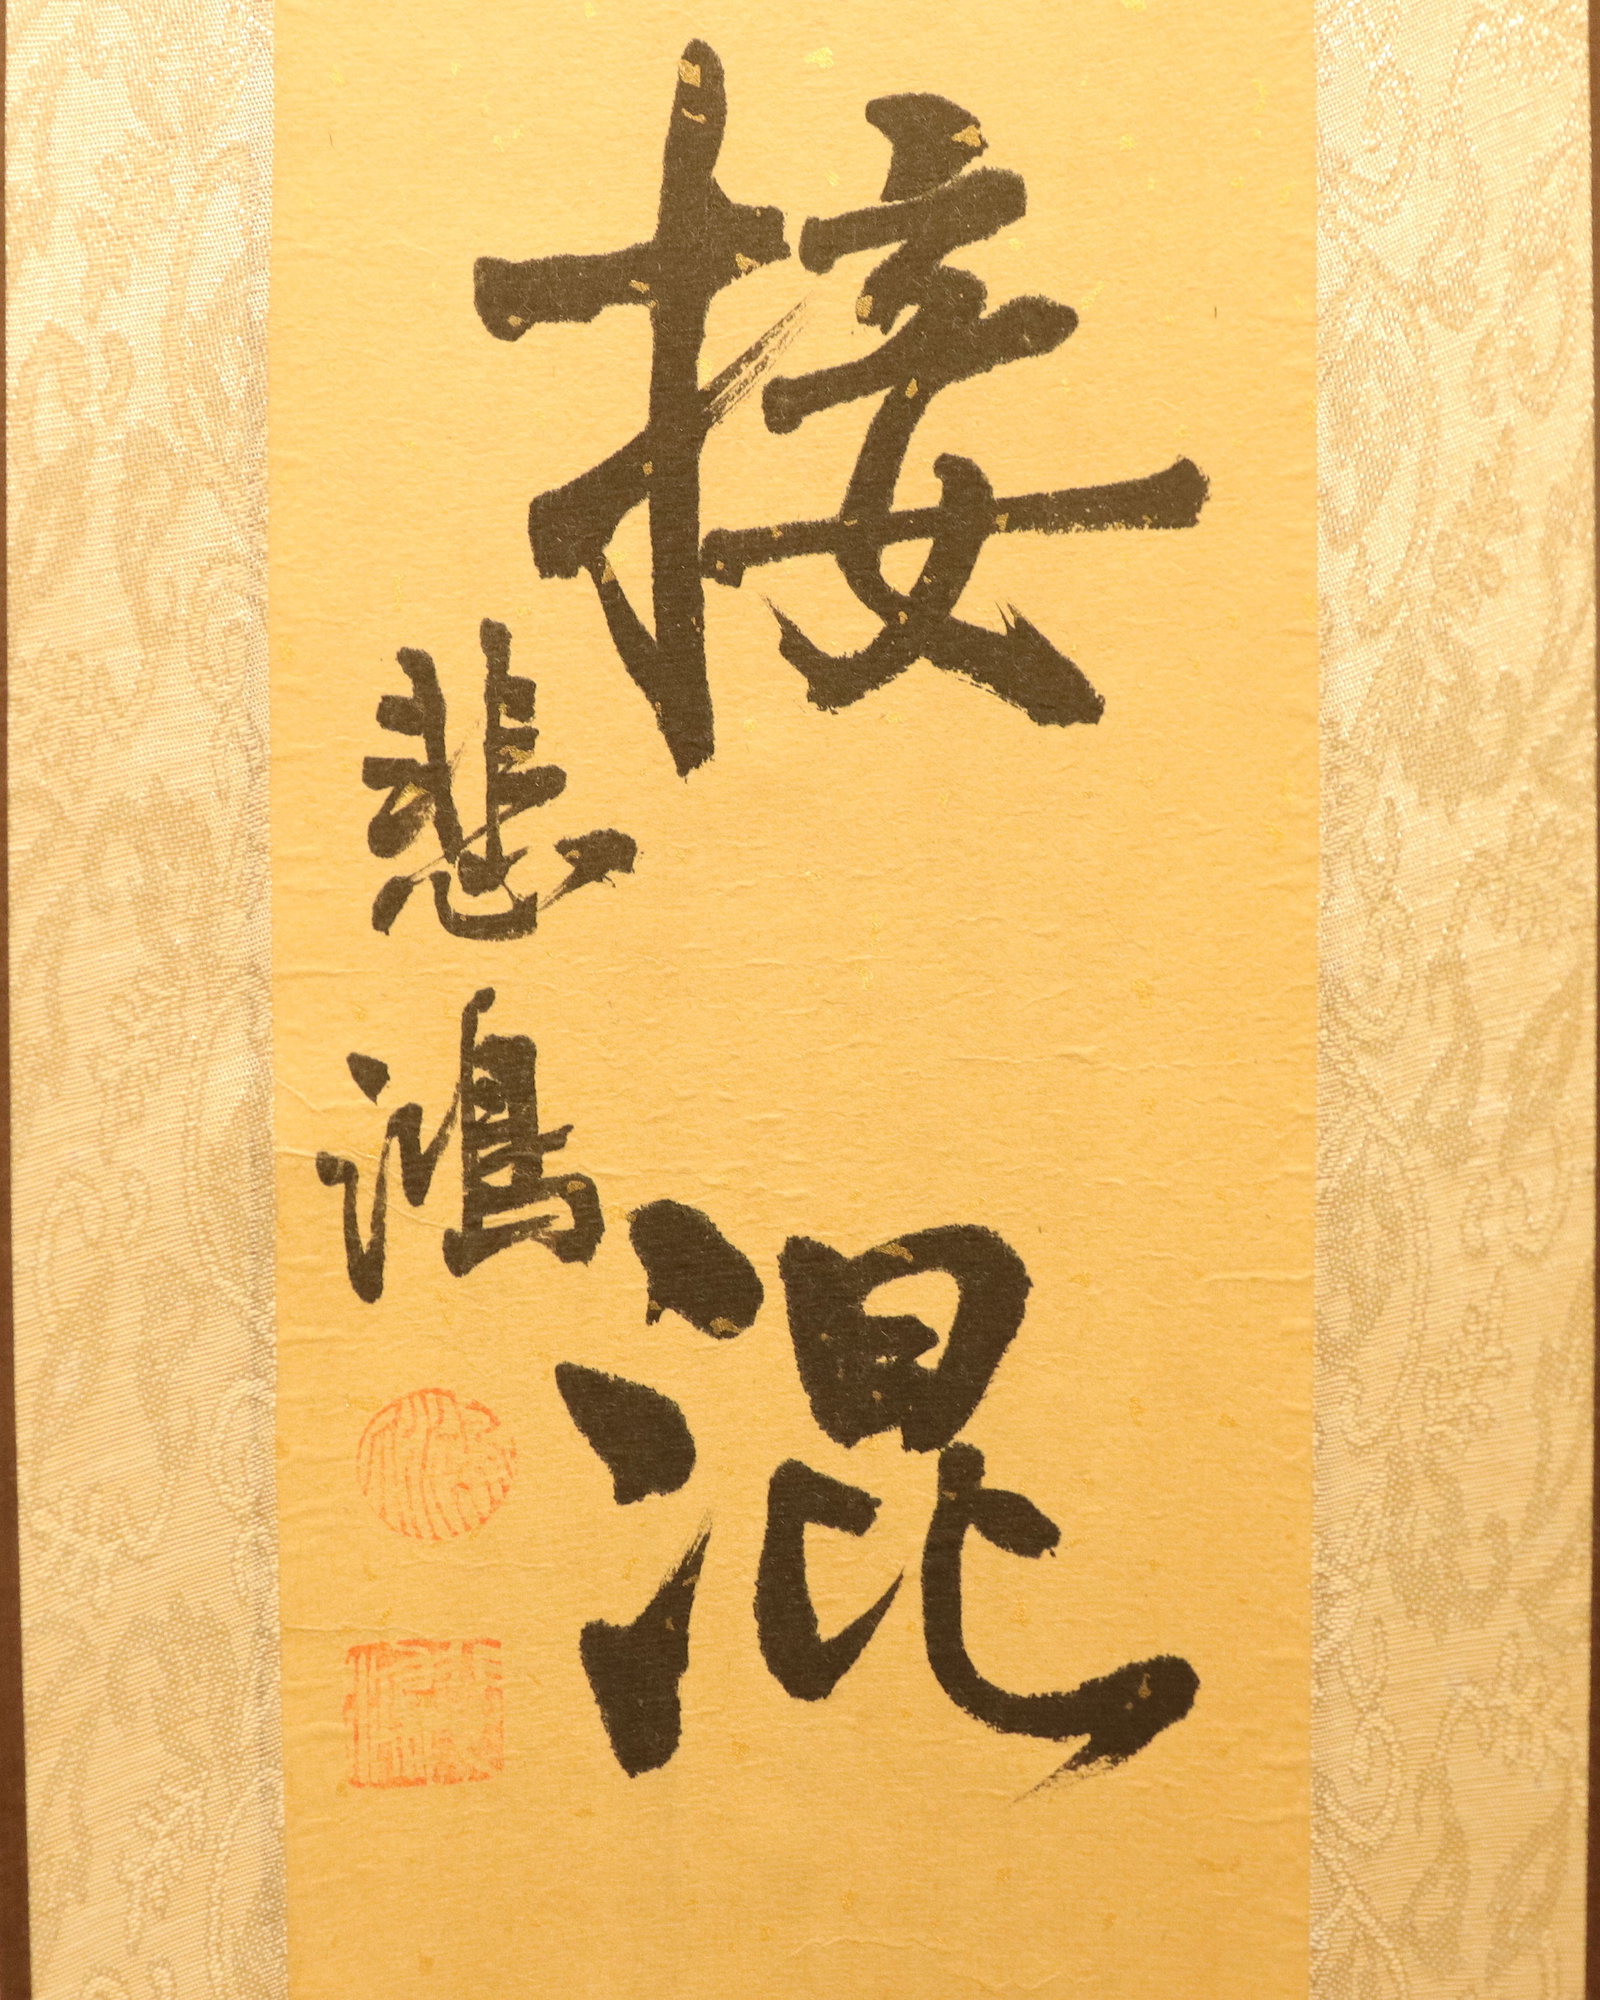 接混
悲鴻